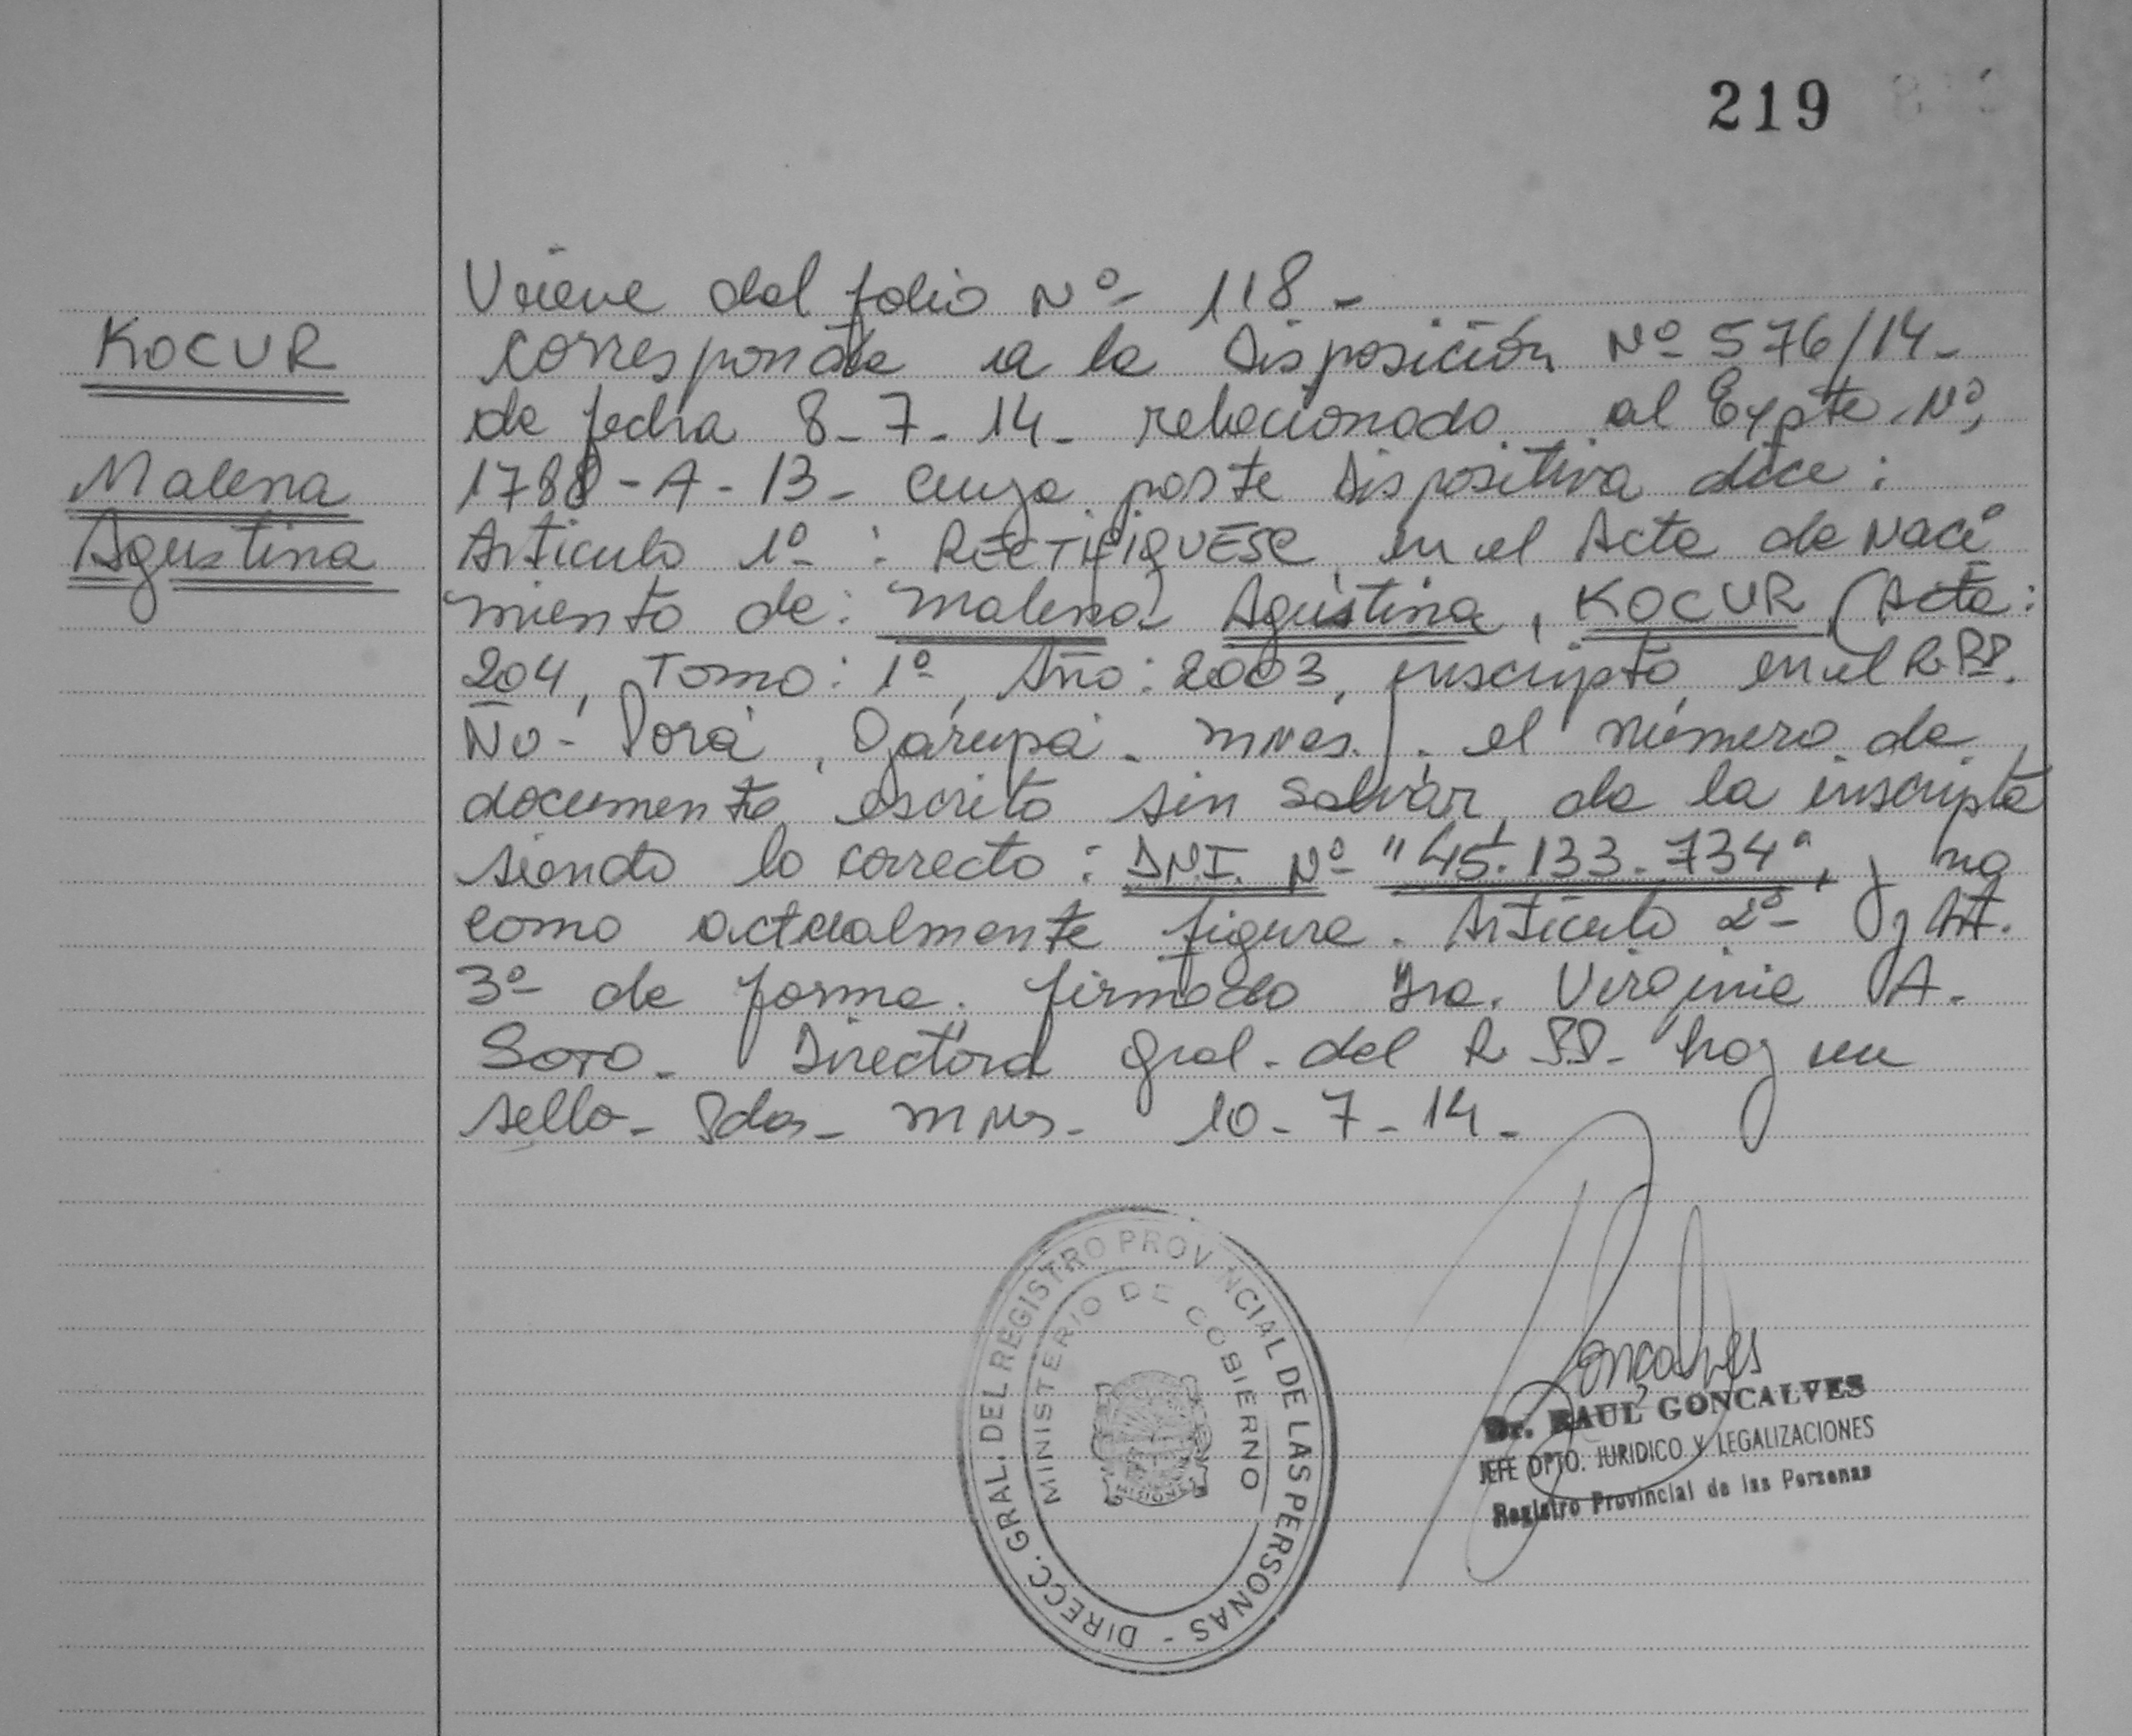 219
KOCUR
Malena
Agustina
Viene del folio Nº 118 -
corresponde a la Disposición Nº 576/14 -
de fecha 8-7-14- relacionado al Expte. Nº
1788-A-13- cuya parte dispositiva dice:
Artículo 1º: RECTIFIQUESE en el Acta de Naci
miento de: Malena Agustina, KOCUR (Acta:
204, Tomo: 1º, Año: 2003, inscripto en el R.PP.
Ñu- Porá, Garupá. Mnes.), el número de
documento escrito sin salvar, de la inscripta
siendo lo correcto: D.N.I. Nº "45.133.734", y no
como actualmente figura. Artículo 2º y Art.
3º de forma. firmado Dra. Virginia A.
SOTO - Directora Gral. del R.PP. hay un
sello - Pdas - Mnes - 10-7-14 -
DIRECC. GRAL. DEL REGISTRO PROVINCIAL DE LAS PERSONAS -
MINISTERIO DE GOBIERNO
MISIONES
Gonçalves
Dr. RAUL GONCALVES
JEFE DPTO. JURIDICO Y LEGALIZACIONES
Registro Provincial de las Personas